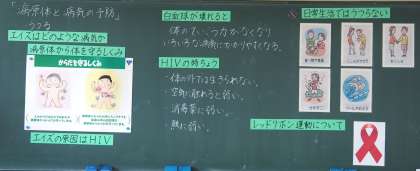 「病原体と病気の予防」
うつる
エイズはどのような病気か
病原体から体を守るしくみ
からだを守るしくみ
エイズの原因はHIV
白血球が壊れると
体のていこう力がなくなり
いろいろな病気にかかりやすくなる。
HIVの特ちょう
・体の外では生きられない。
・空気に触れると弱い。
・消毒薬に弱い。
・熱に弱い。
日常生活ではうつらない
レッドリボン運動について